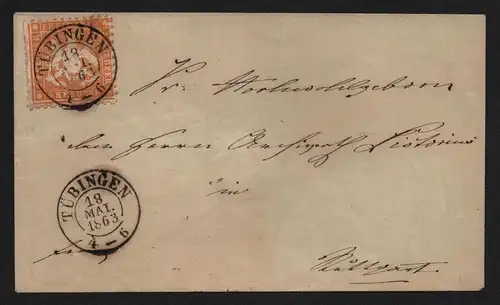 TÜBINGEN
18
63
4-6
Sr. Wohlwohlgeborn
dem Herrn Archivrath Pistorius
in
Stuttgart
TÜBINGEN
18
MAI.
1863
4-6